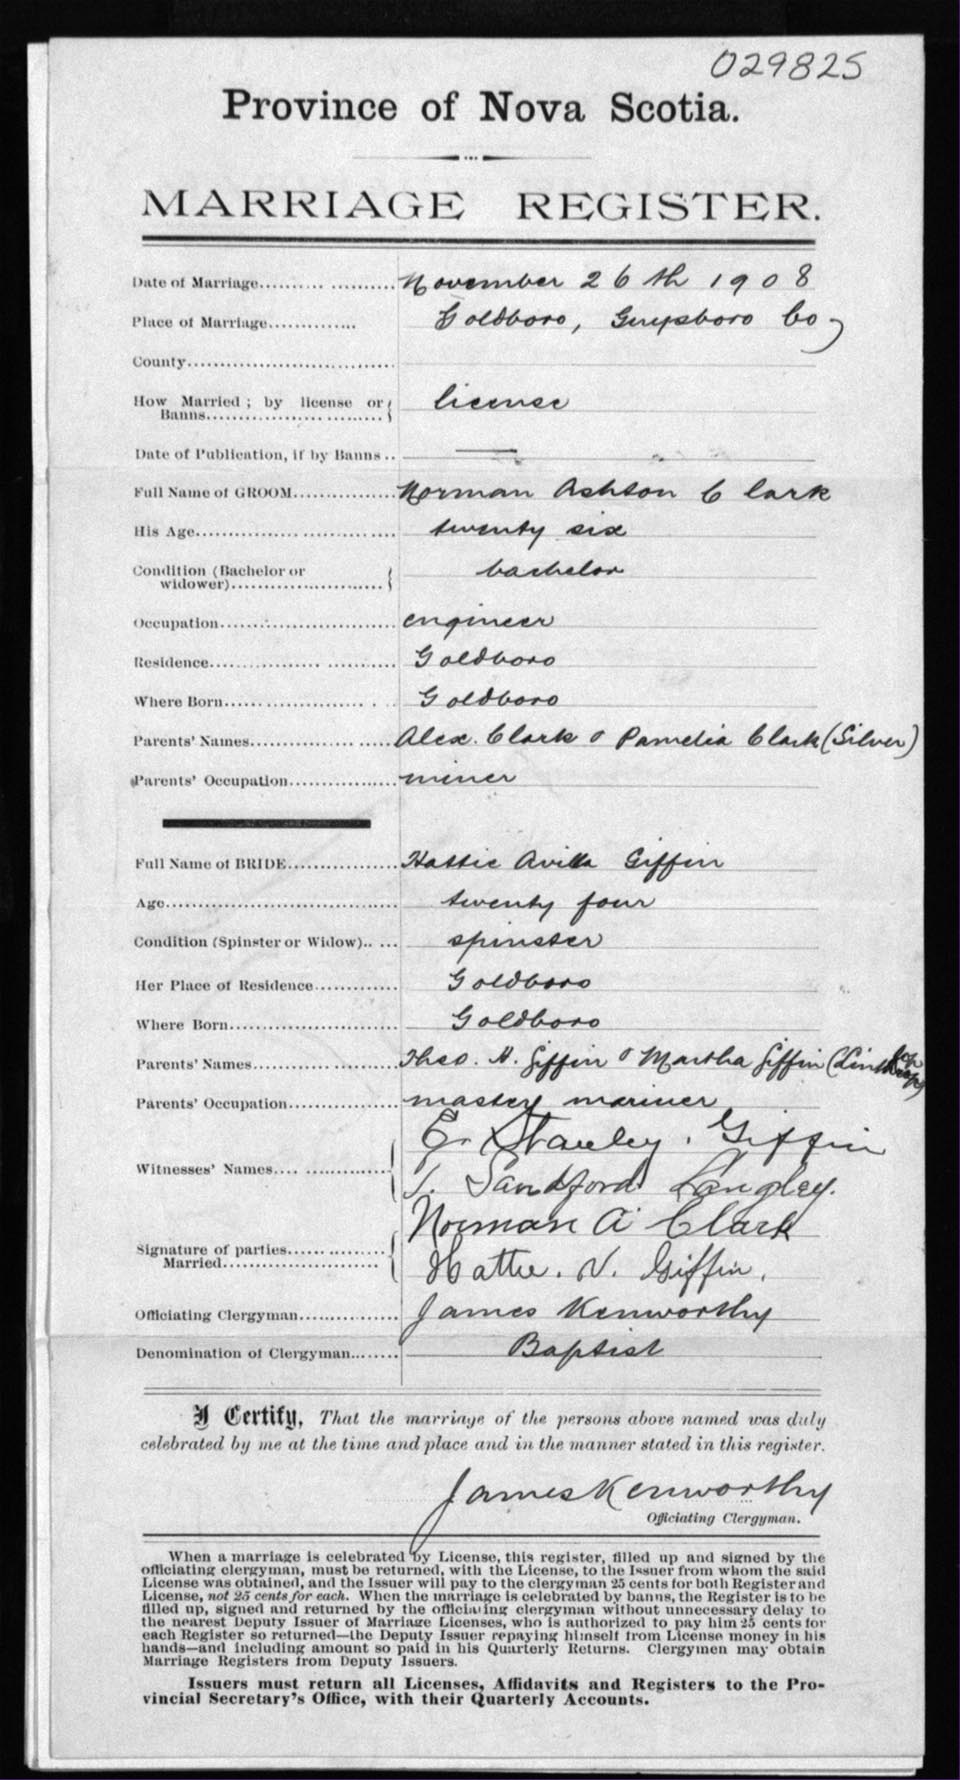 029825
Province of Nova Scotia.
MARRIAGE REGISTER.
Date of Marriage.......... November 26th 1908
Place of Marriage.......... Goldboro, Guysboro Co
County..........
How Married ; by license or
Banns.......... license
Date of Publication, if by Banns .. —
Full Name of GROOM.......... Norman Ashton Clark
His Age.......... twenty six
Condition (Bachelor or
widower).......... bachelor
Occupation.......... engineer
Residence.......... Goldboro
Where Born.......... Goldboro
Parents' Names.......... Alex. Clark & Pamelia Clark (Silver)
Parents' Occupation.......... miner
Full Name of BRIDE.......... Hattie Avilla Giffin
Age.......... twenty four
Condition (Spinster or Widow).. ... spinster
Her Place of Residence.......... Goldboro
Where Born.......... Goldboro
Parents' Names.......... Theo. H. Giffin & Martha Giffin
Parents' Occupation.......... master mariner
E. Stanley Giffin
Witnesses' Names..........
Sandford Langley.
Norman A Clark
Signature of parties
Married..........
Hattie. Giffin.
Officiating Clergyman.......... James Kenworthy
Denomination of Clergyman........ Baptist
I Certify, That the marriage of the persons above named was duly
celebrated by me at the time and place and in the manner stated in this register.
James Kenworthy
Officiating Clergyman.
When a marriage is celebrated by License, this register, filled up and signed by the
officiating clergyman, must be returned, with the License, to the Issuer from whom the said
License was obtained, and the Issuer will pay to the clergyman 25 cents for both Register and
License, not 25 cents for each. When the marriage is celebrated by banns, the Register is to be
filled up, signed and returned by the officiating clergyman without unnecessary delay to
the nearest Deputy Issuer of Marriage Licenses, who is authorized to pay him 25 cents for
each Register so returned—the Deputy Issuer repaying himself from License money in his
hands—and including amount so paid in his Quarterly Returns. Clergymen may obtain
Marriage Registers from Deputy Issuers.
Issuers must return all Licenses, Affidavits and Registers to the Pro-
vincial Secretary's Office, with their Quarterly Accounts.